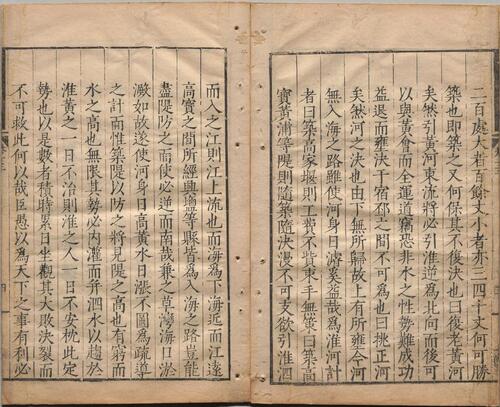 二百處大者百餘丈小者亦三四十丈何可勝
築也即築之又何保其不復決也曰復老黃河
矣然引黃河東流將必引淮逆為北向而後可
以與黃會而全運道竊恐非水之性勢難成功
益退而壅決于宿邳之間不可為也曰挑正河
矣然河之決也由下無所歸故上有所壅今河
無入海之路雖使河身日濬奚益哉為淮河計
者曰築高家堰則工費不貲束手無策曰築高
寶黃浦等隄則隨築隨決漫不可支欲引淮泗
而入之江則江上流也而海為下海近而江遠
高寶之間所經興鹽等縣皆為入海之路豈能
盡隄防之而使必逆而南哉兼之草灣海口淤
澱如故遂使河身日高黃水日漲不圖為疏導
之計而惟築隄以防之將見隄之高也有窮而
水之高也無限其勢必內灌而并泗水以趨於
淮黃之一日不治則淮之人一日不安枕此定
勢也以是數者積時累日坐觀其大敗決裂而
不可救此何以哉臣愚以為天下之事有利必